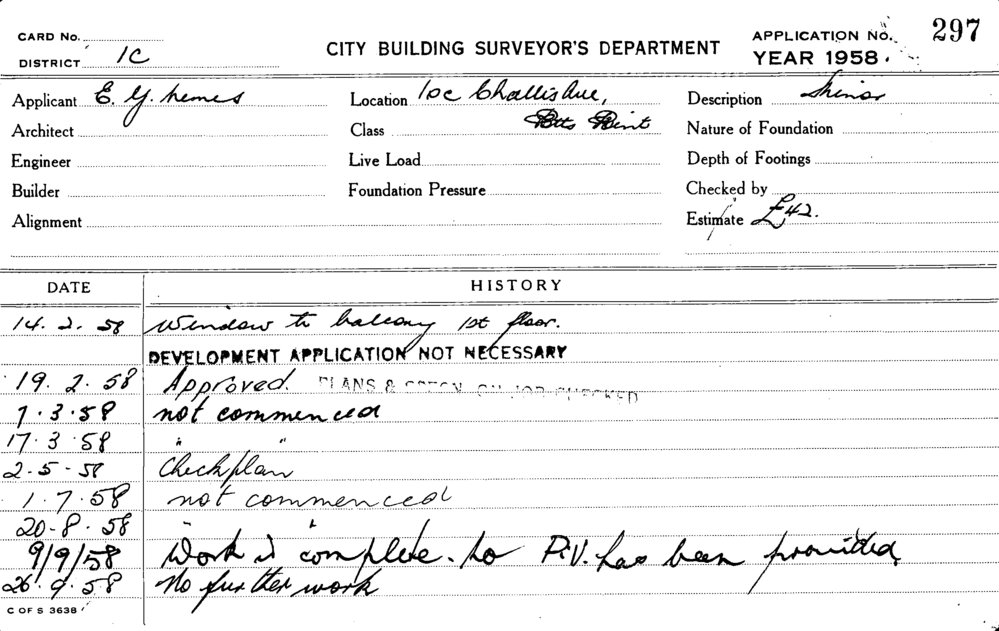 CARD No.
DISTRICT 1C
CITY BUILDING SURVEYOR'S DEPARTMENT
APPLICATION No. 297
YEAR 1958.
Applicant E. G. Nemes
Location 10c Challis Ave,
Potts Point
Description Minor
Architect
Class
Nature of Foundation
Engineer
Live Load
Depth of Footings
Builder
Foundation Pressure
Checked by
Alignment
Estimate £42.
DATE HISTORY
14. 2. 58 Window to balcony 1st floor.
DEVELOPMENT APPLICATION NOT NECESSARY
19. 2. 58 Approved. PLANS & ON JOB CHECKED
7. 3. 58 not commenced
17. 3. 58 " "
2-5-58 Check plan
1. 7. 58 not commenced
20-8. 58 " "
9/9/58 Work is complete. no P.V. has been provided
26. 9. 58 No further work
C OF S 3638